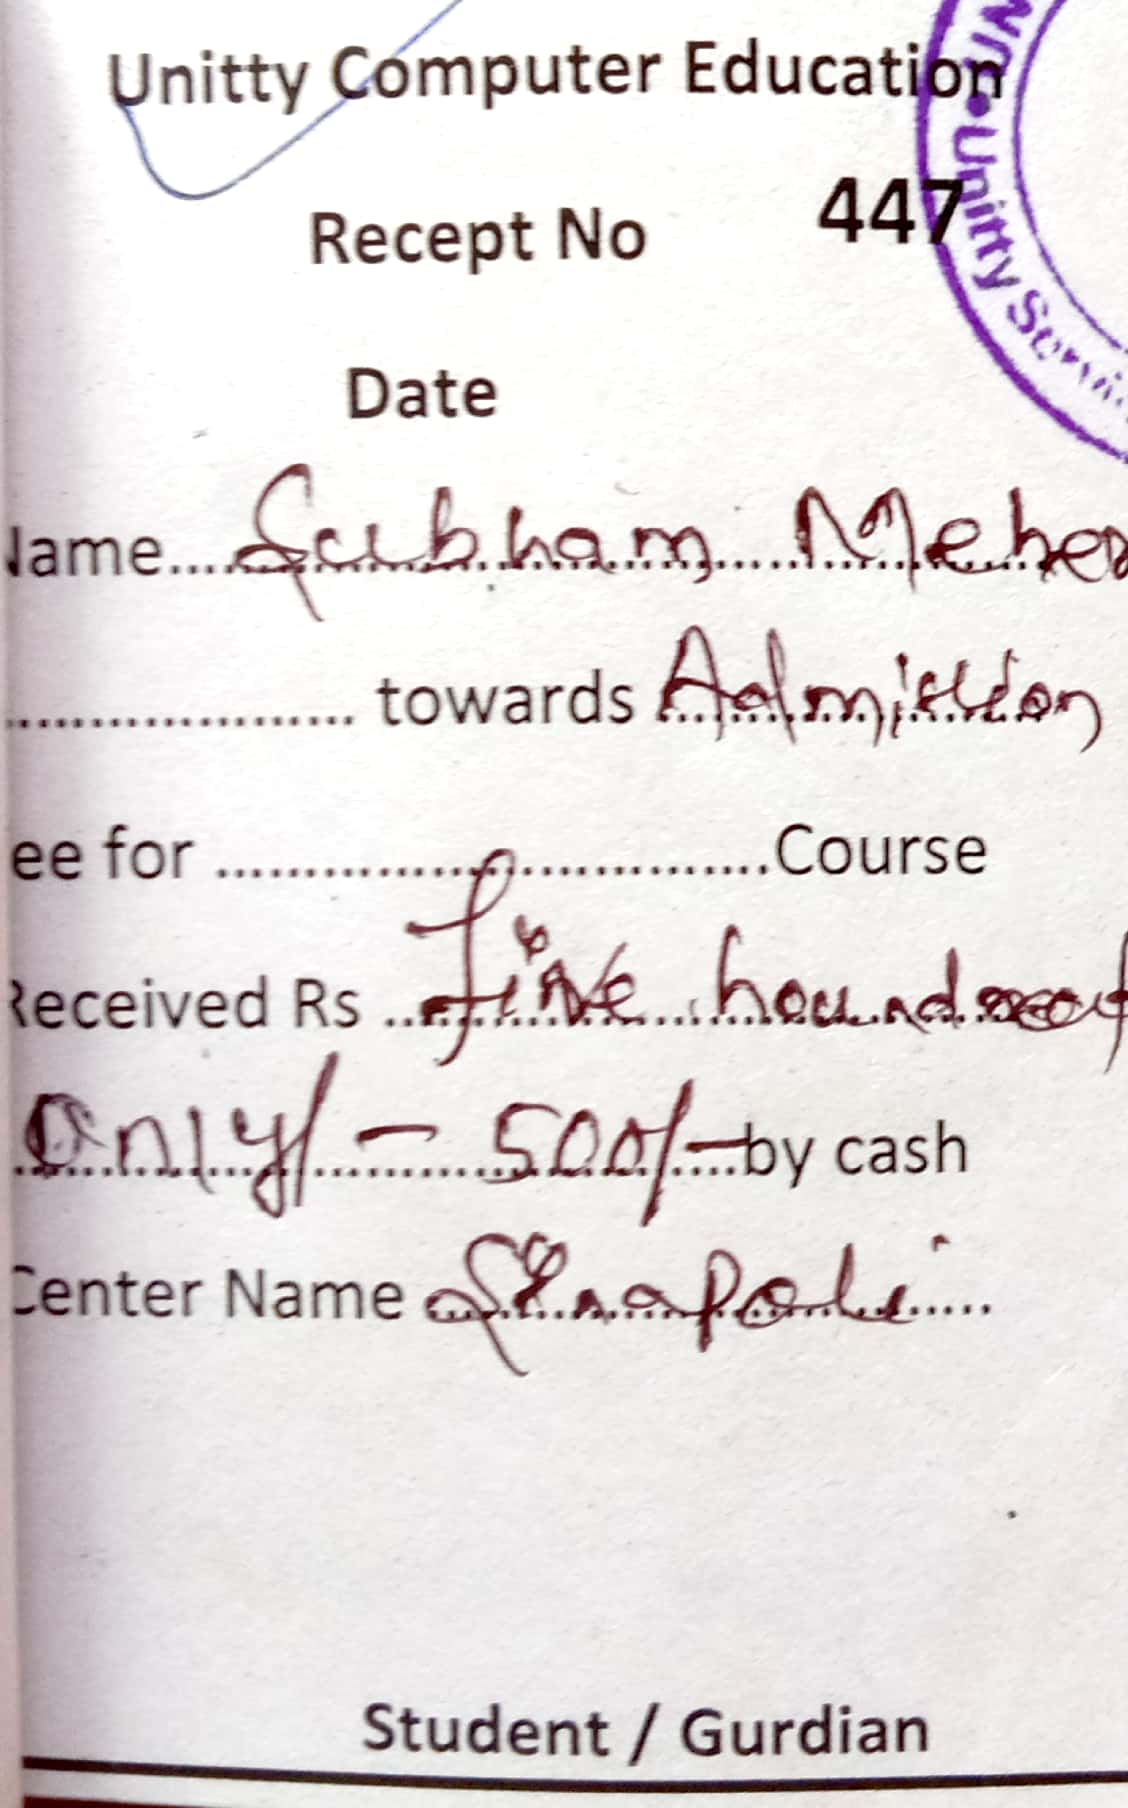 Unitty Computer Education
Recept No 447
Date
Name.... Subham Meher
.................... towards Admission
ee for ................................Course
Received Rs .. Five houndred
Only/- 500/- by cash
Center Name Sinapali
Student / Gurdian
Unitty Servi